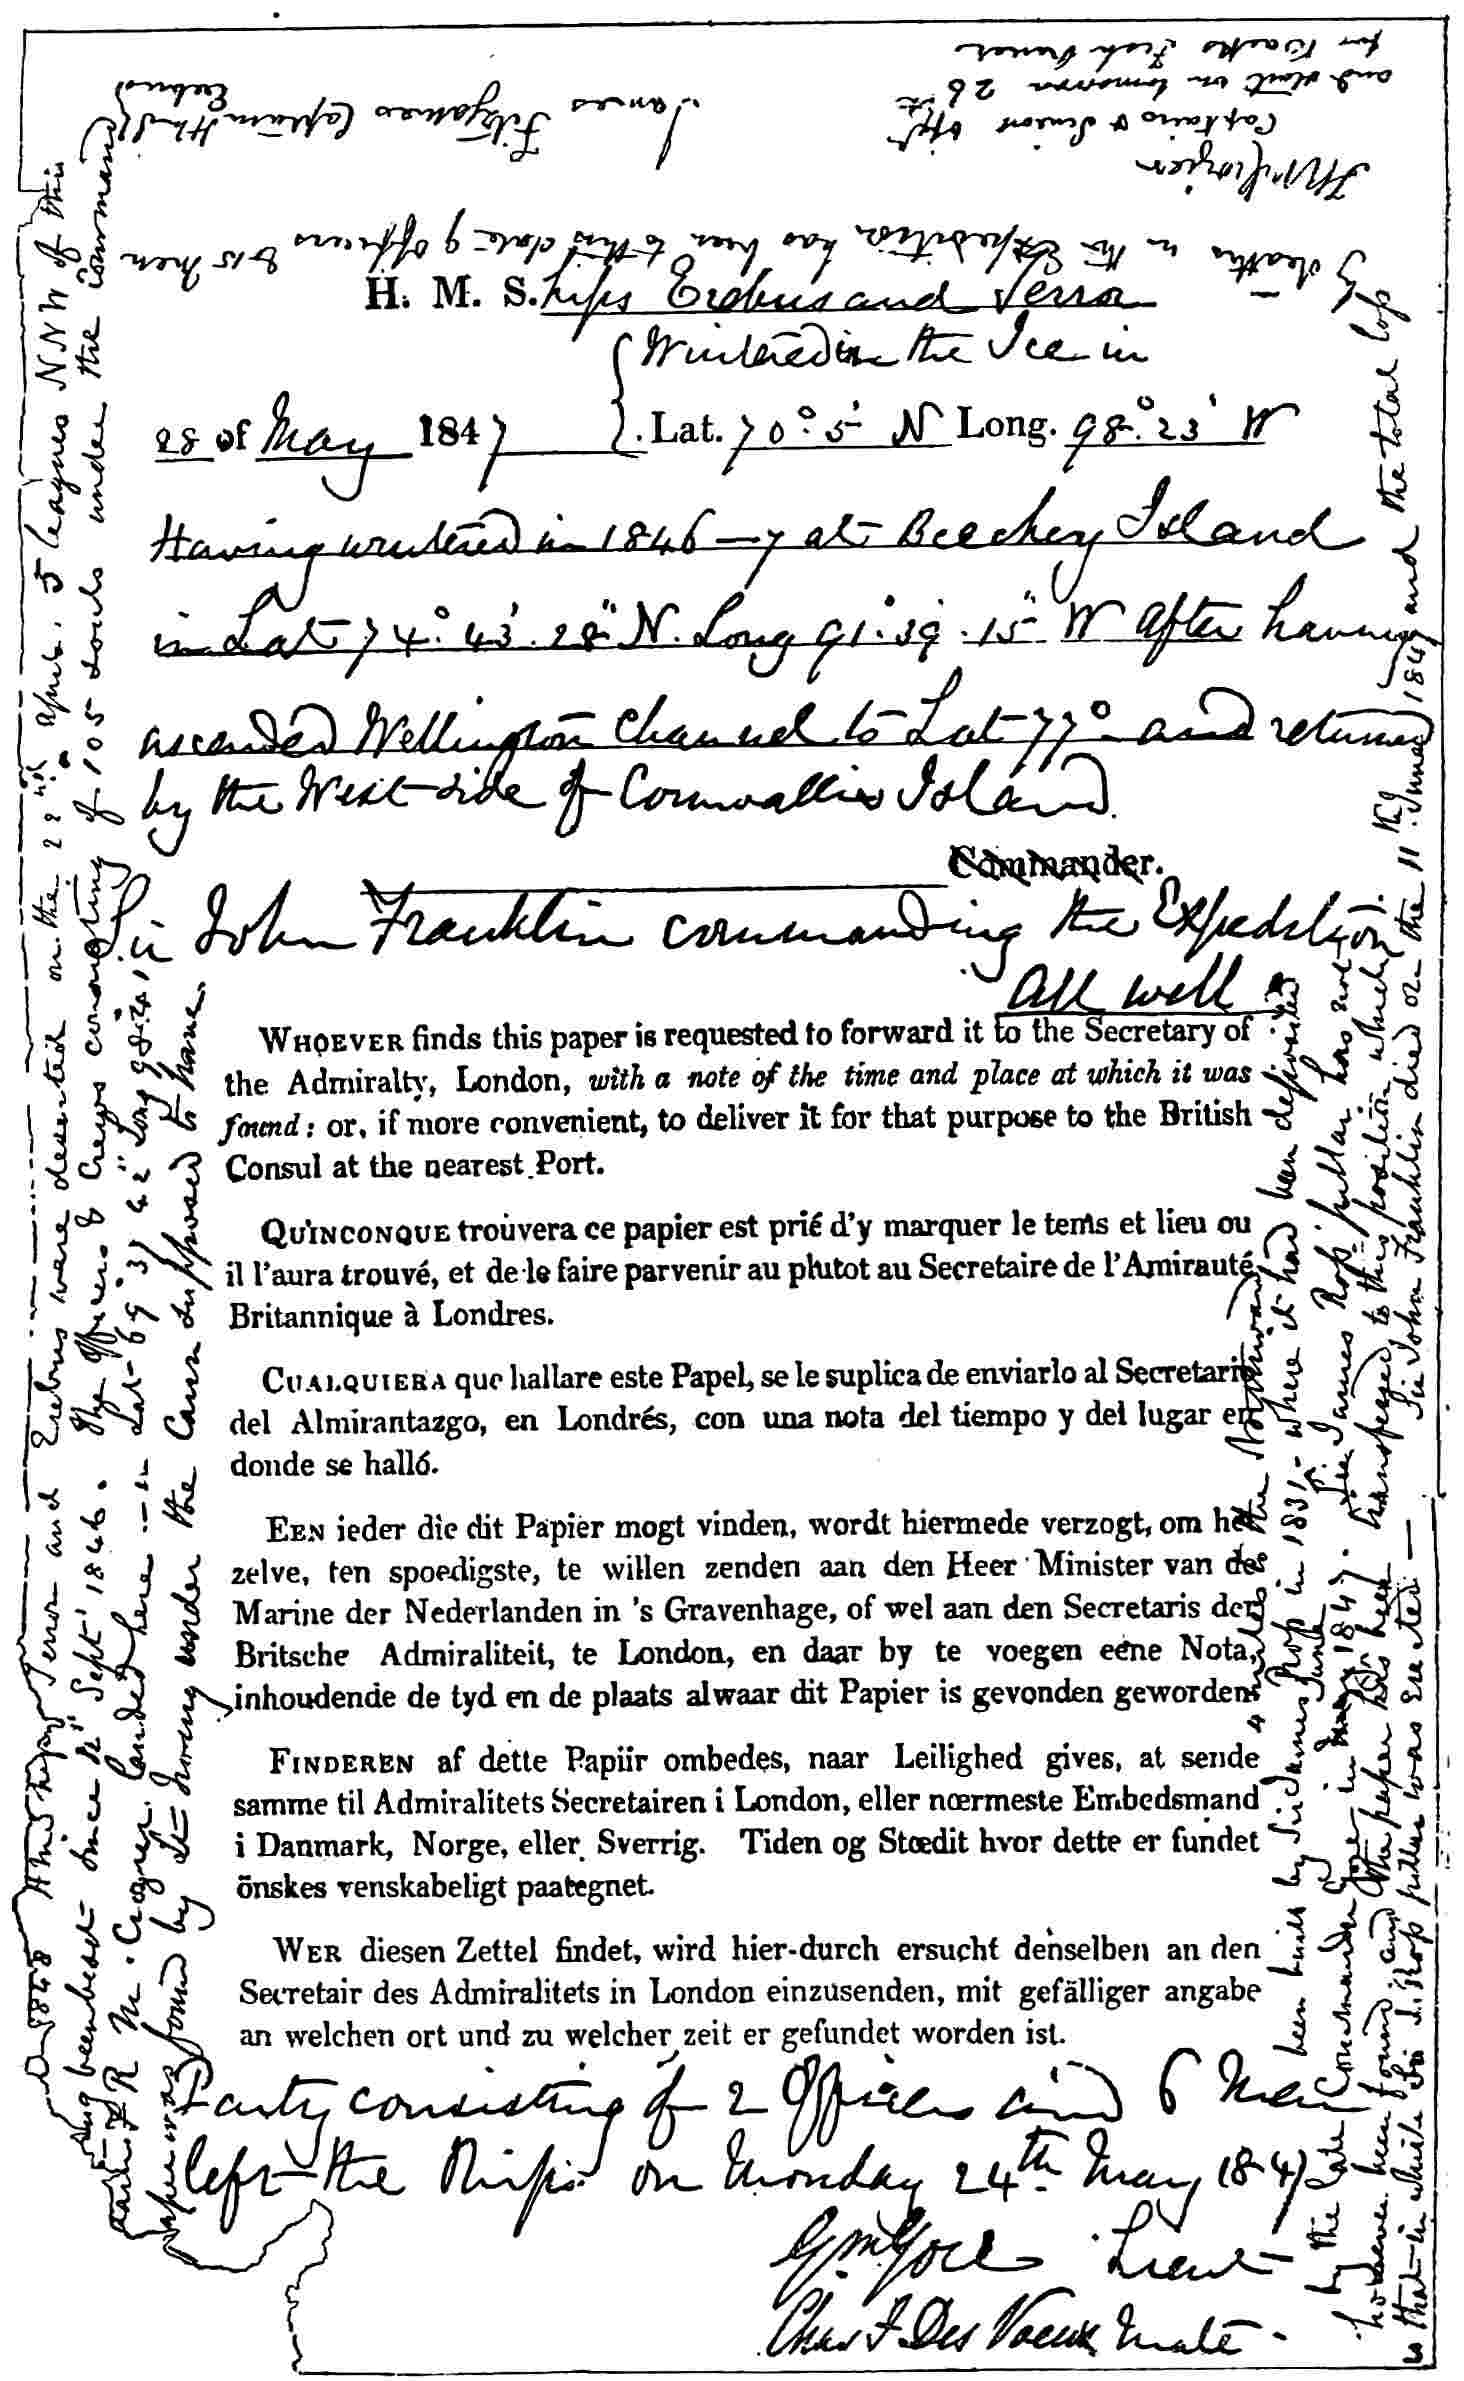 H. M. S. hips Erebus and Terror
Wintered in the Ice in
28 of May 1847 Lat. 70° 5' N Long. 98°. 23' W
Having wintered in 1846–7 at Beechey Island
in Lat 74°. 43'. 28" N. Long 91°. 39'. 15" W after having
ascended Wellington Channel to Lat 77° – and returned
by the West side of Cornwallis Island.
Commander.
Sir John Franklin commanding the Expedition.
All well
WHOEVER finds this paper is requested to forward it to the Secretary of
the Admiralty, London, with a note of the time and place at which it was
found: or, if more convenient, to deliver it for that purpose to the British
Consul at the nearest Port.
QUINCONQUE trouvera ce papier est prié d'y marquer le tems et lieu ou
il l'aura trouvé, et de le faire parvenir au plutot au Secretaire de l'Amirauté
Britannique à Londres.
CUALQUIERA que hallare este Papel, se le suplica de enviarlo al Secretario
del Almirantazgo, en Londrés, con una nota del tiempo y del lugar en
donde se halló.
EEN ieder die dit Papier mogt vinden, wordt hiermede verzogt, om het
zelve, ten spoedigste, te willen zenden aan den Heer Minister van de
Marine der Nederlanden in 's Gravenhage, of wel aan den Secretaris der
Britsche Admiraliteit, te London, en daar by te voegen eene Nota,
inhoudende de tyd en de plaats alwaar dit Papier is gevonden geworden
FINDEREN af dette Papiir ombedes, naar Leilighed gives, at sende
samme til Admiralitets Secretairen i London, eller nœrmeste Embedsmand
i Danmark, Norge, eller Sverrig. Tiden og Stœdit hvor dette er fundet
önskes venskabeligt paategnet.
WER diesen Zettel findet, wird hier-durch ersucht denselben an den
Secretair des Admiralitets in London einzusenden, mit gefälliger angabe
an welchen ort und zu welcher zeit er gefundet worden ist.
Party consisting of 2 Officers and 6 Men
left the Ships on Monday 24th. May 1847
Gm. Gore Lieut
Chas F. Des Voeux Mate.
1848 HM Ships Terror and Erebus were deserted on the 22nd April, 5 leagues NNW of this
ing been beset since 12th Sept 1846. The Officers & Crews consisting of 105 souls under the command
F R M. Crozier landed here – in Lat 69° 37' 42" Long 98° 41'
aper was found by Lt Irving under the Cairn supposed to have
been built by Sir James Ross in 1831 – where it had been deposited
4 miles to the Northward
by the late Commander Gore in May June 1847. Sir James Ross' pillar has not
however been found, and the paper has been transferred to this position which
is that in which Sir J. Ross pillar was erected –
Sir John Franklin died on the 11th June 1847 and the total loss
by deaths in the Expedition has been to this date 9 officers & 15 men
James Fitzjames Captain HMS Erebus
F R M Crozier
Captain & Senior Offr
and start on tomorrow 26th
for Backs Fish River